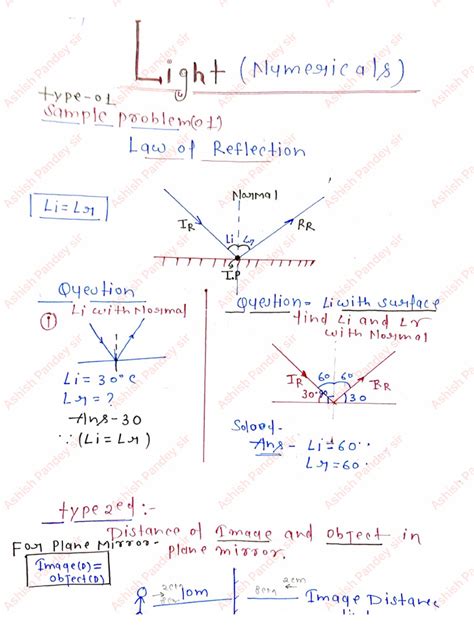 Light (Numericals)
type-01
Sample problem(01)
Law of Reflection
Normal
Li = Lr
IR
Li
Lr
RR
I.P
Question
(i) Li with Normal
Li = 30° C
Lr = ?
Ans - 30
∵ (Li = Lr)
Question - Li with surface
find Li and Lr
with Normal
IR
60
60
RR
30
30
Solood -
Ans - Li = 60
Lr = 60
type 2ed :-
Distance of Image and object in
plane mirror.
For Plane Mirror -
Image(D) =
Object(D)
2cm
10m
2cm
2cm
Image Distance
Ashish Pandey sir